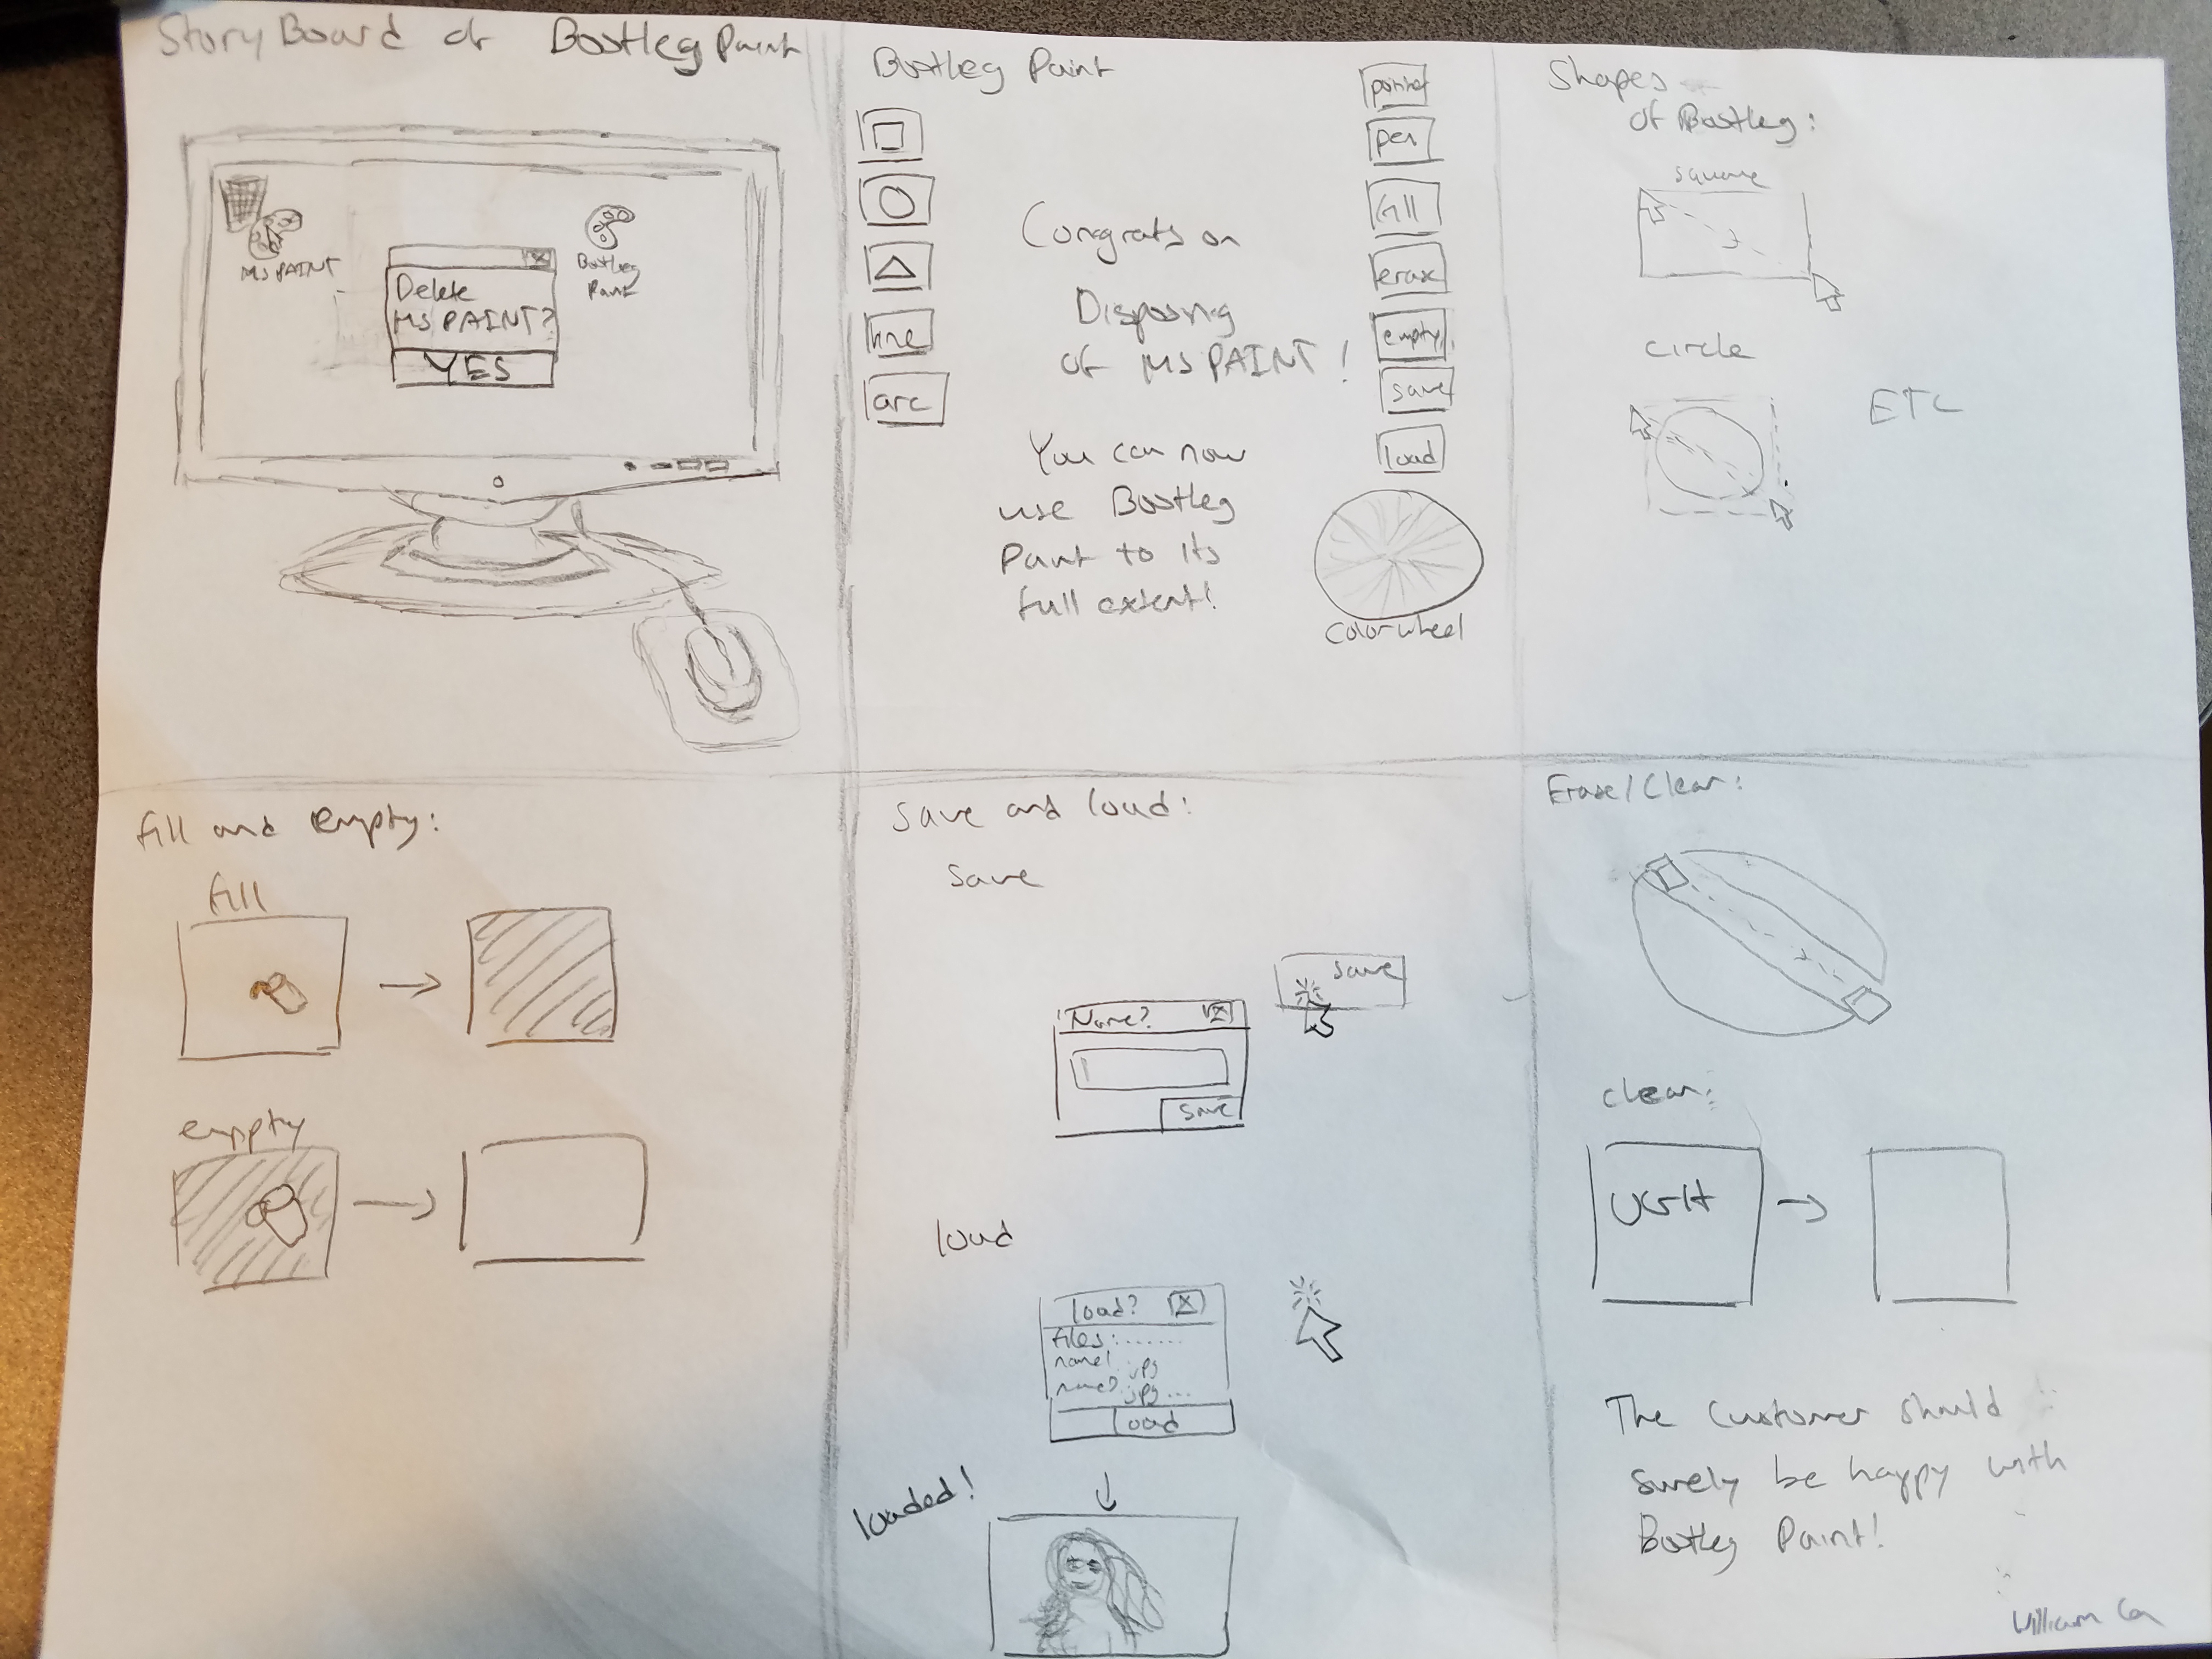 Story Board of Bootleg Paint
MS PAINT
Delete
MS PAINT?
YES
Bootleg
Paint
Bootleg Paint
line
arc
Congrats on
Disposing
of MS PAINT!
You can now
use Bootleg
Paint to its
full extent!
pointer
pen
fill
erase
empty
save
load
color wheel
Shapes
of Bootleg:
square
circle
ETC
fill and empty:
fill
empty
save and load:
save
save
Name?
save
load
load?
files:......
name1.jpg
name2.jpg...
load
loaded!
Erase/Clear:
clear:
The customer should
surely be happy with
Bootleg Paint!
William